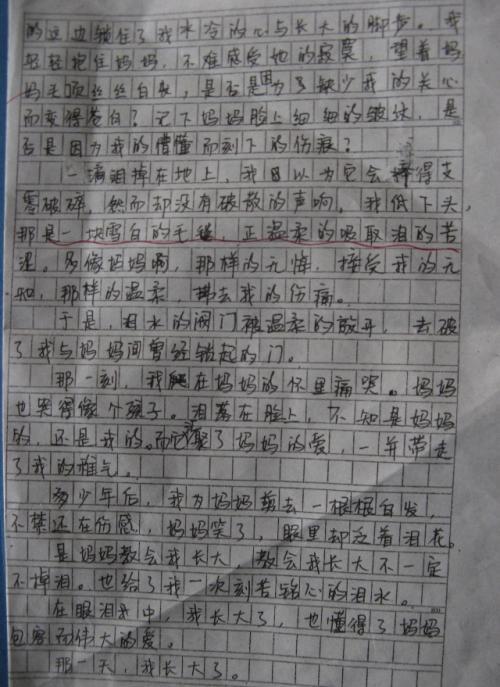 的这边锁住了我冰冷的心与长大的脚步。我
轻轻抱住妈妈,不难感受她的寂寞,望着妈
妈毛顶丝丝白发,是否是因为了缺少我的关心
而变得苍白?记下妈妈脸上细细的皱纹,是
否是因为我的懵懂而刻下的伤痕?
一滴泪掉在地上,我因以为它会摔得支
零破碎,然而却没有破散的声响,我低下头,
那是一块雪白的毛毯,正温柔的吸取泪的苦
涩。多像妈妈啊,那样的无悔,接受我的无
知,那样的温柔,带去我的伤痛。
于是,泪水的阀门被温柔的敞开,去破
了我与妈妈间曾经锁起的门。
那一刻,我爬在妈妈的怀里痛哭。妈妈
也哭得像个孩子。泪落在脸上,不知是妈妈
的,还是我的。而它聚了妈妈的爱,一并带走
了我的稚气。
多少年后,我为妈妈剪去一根根白发,
不禁还在伤感,妈妈笑了,眼里却泛着泪花。
是妈妈教会我长大,教会我长大不一定
不掉泪。也给了我一次刻苦铭心的泪水。
在眼泪中,我长大了,也懂得了妈妈
包容而伟大的爱。
那一天,我长大了。